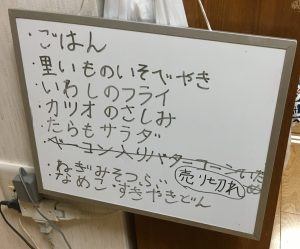 ・ごはん
・里いものいそべやき
・いわしのフライ
・カツオのさしみ
・たらもサラダ
・ベーコン入りバターコーンいため
売り切れ
・ねぎみそつらい
・なめこ・すきやきどん